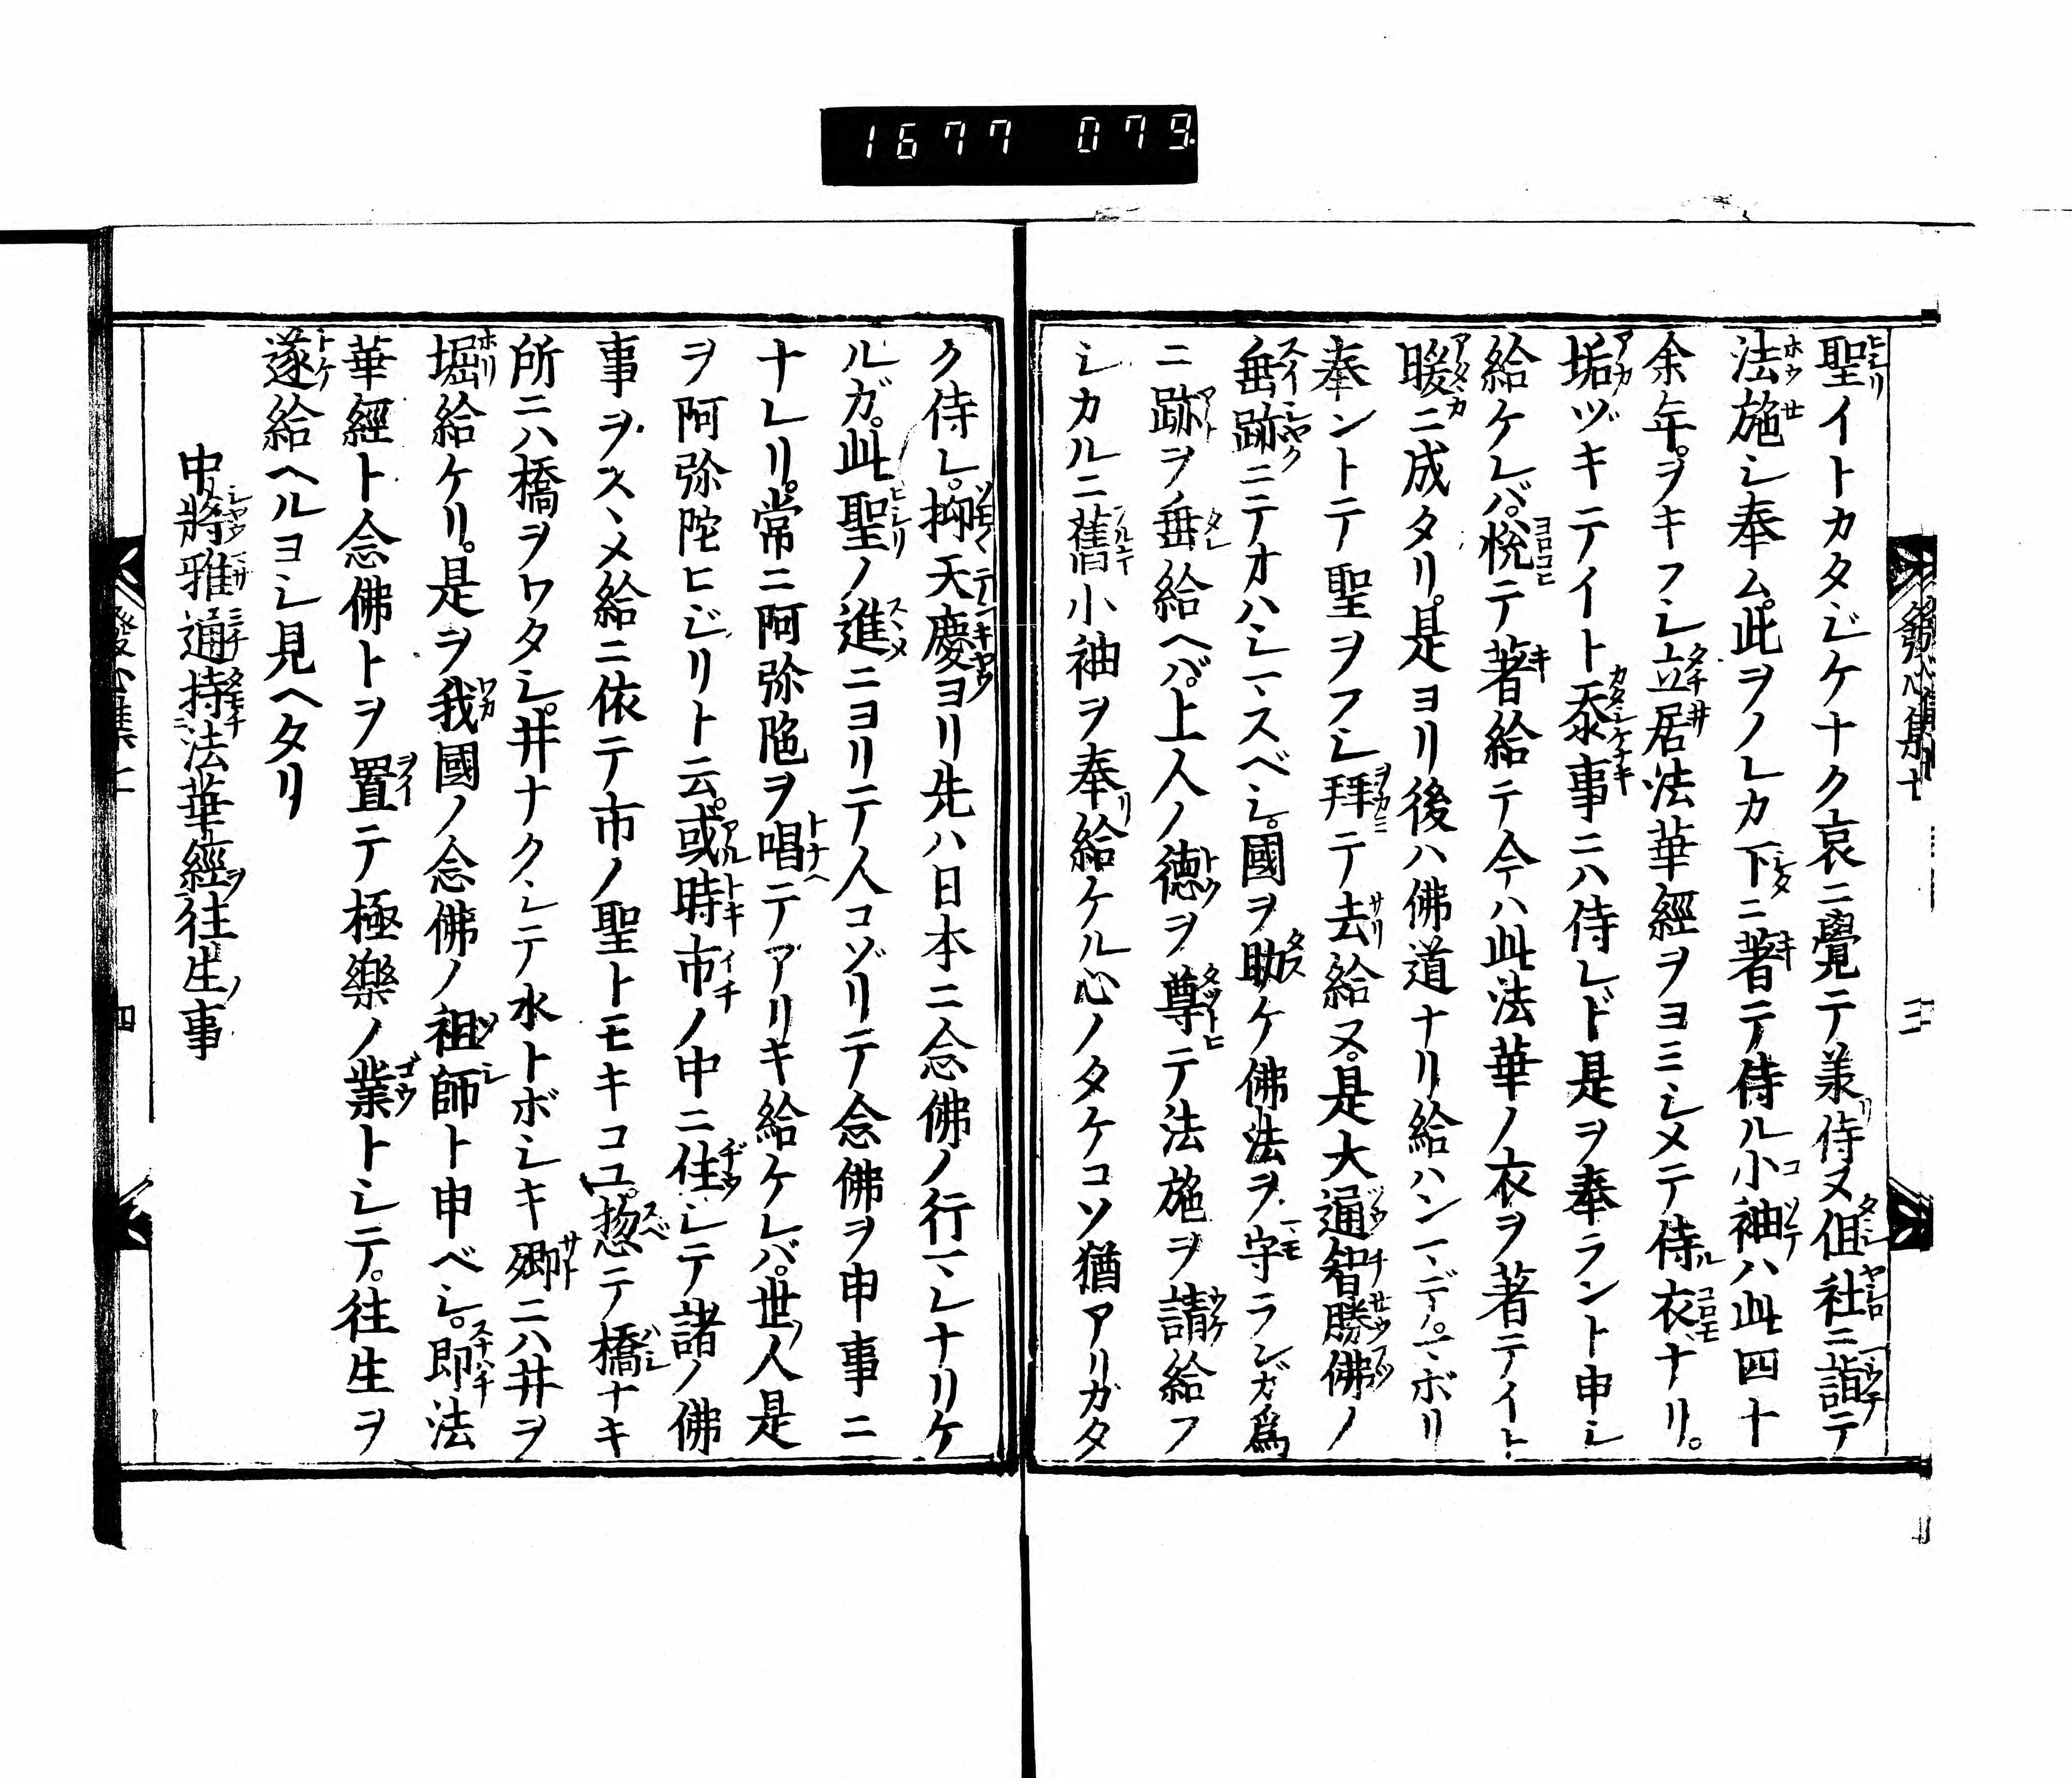 1677 079
聖イトカタジケナク哀ニ覺テ美侍ヌ但社ニ詣テ
法施シ奉ム。此ヲノレカ下ニ著テ侍ル小袖ハ此四十
余年。ヲキフシ立居法華經ヲヨミシメテ侍衣ナリ。
垢ヅキテイト忝事ニハ侍レド是ヲ奉ラント申シ
給ケレバ。悦テ著給テ今ハ此法華ノ衣ヲ著テイト
暖ニ成タリ。是ヨリ後ハ佛道ナリ給ハンマデ。マボリ
奉ントテ聖ヲフシ拜テ去給ヌ。是大通智勝佛ノ
垂跡ニテオハシマスベシ。國ヲ助ケ佛法ヲ守ランガ爲
ニ跡ヲ垂給ヘバ。上人ノ德ヲ尊テ法施ヲ請給フ
シカルニ舊小袖ヲ奉給ケル心ノタケコソ猶アリガタ
ク侍レ。抑天慶ヨリ先ハ日本ニ念佛ノ行マレナリケ
ルガ。此聖ノ進ニヨリテ人コゾリテ念佛ヲ申事ニ
ナレリ。常ニ阿弥陁ヲ唱テアリキ給ケレバ。世人是
ヲ阿弥陀ヒジリト云。或時市ノ中ニ住シテ諸ノ佛
事ヲスヽメ給ニ依テ市ノ聖トモキコユ。惣テ橋ナキ
所ニハ橋ヲワタシ。井ナクシテ水トボシキ郷ニハ井ヲ
堀給ケリ。是ヲ我國ノ念佛ノ祖師ト申ベシ。即法
華經ト念佛トヲ置テ極樂ノ業トシテ。往生ヲ
遂給ヘルヨシ見ヘタリ
中將雅通持法華經往生事